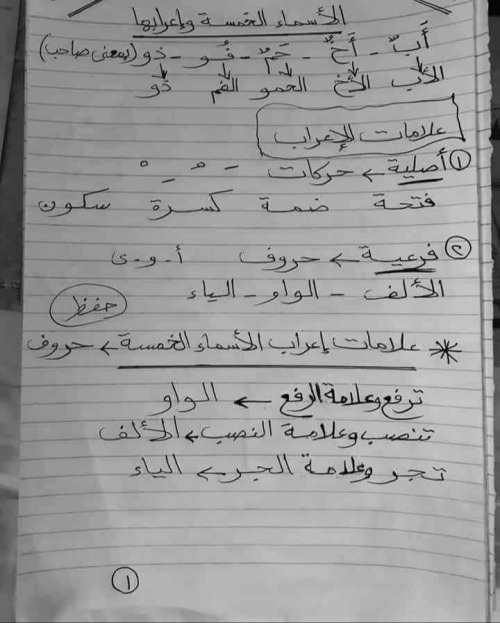 الأسماء الخمسة وإعرابها
أَبٌ - أَخٌ - حَمٌ - فُو - ذو (بمعنى صاحب)
الأب الأخ الحمو الفم ذو
علامات الإعراب
① أصلية ← حركات َ ُ ِ ْ
فتحة ضمة كسرة سكون
② فرعية ← حروف أ - و - ى
الألف - الواو - الياء
حفظ
* علامات إعراب الأسماء الخمسة ← حروف
ترفع وعلامة الرفع ← الواو
تنصب وعلامة النصب ← الألف
تجر وعلامة الجر ← الياء
①